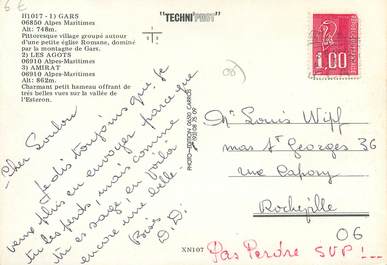 6 €
II1017 - 1) GARS
06850 Alpes-Maritimes
Alt: 748m.
Pittoresque village groupé autour
d'une petite église Romane, dominé
par la montagne de Gars.
2) LES AGOTS
06910 Alpes-Maritimes
3) AMIRAT
06910 Alpes-Maritimes
Alt: 862m.
Charmant petit hameau offrant de
très belles vues sur la vallée de
l'Esteron.
- Cher Loulou
Je dis toujours que je
veux plus en envoyer parce que
tu les perds, mais comme
tu es sage, en voilà
encore une belle
Bises
D.D.
"TECHNI'PHOT"
PHOTO-EDITION 06510 CARROS
XN107
06
1,00
Mr Louis Wipf
mas St Georges 36
rue
Rocheville
06
Pas Perdre SVP !--